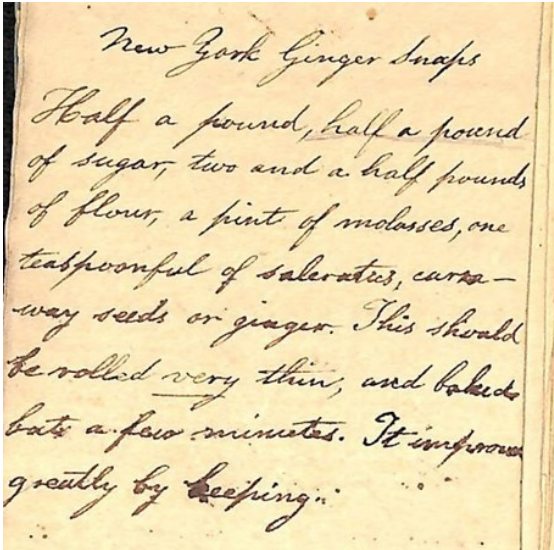 New York Ginger Snaps
Half a pound, half a pound
of sugar, two and a half pounds
of flour, a pint of molasses, one
teaspoonful of saleratus, carra-
way seeds or ginger. This should
be rolled very thin, and baked
but a few minutes. It improves
greatly by keeping.